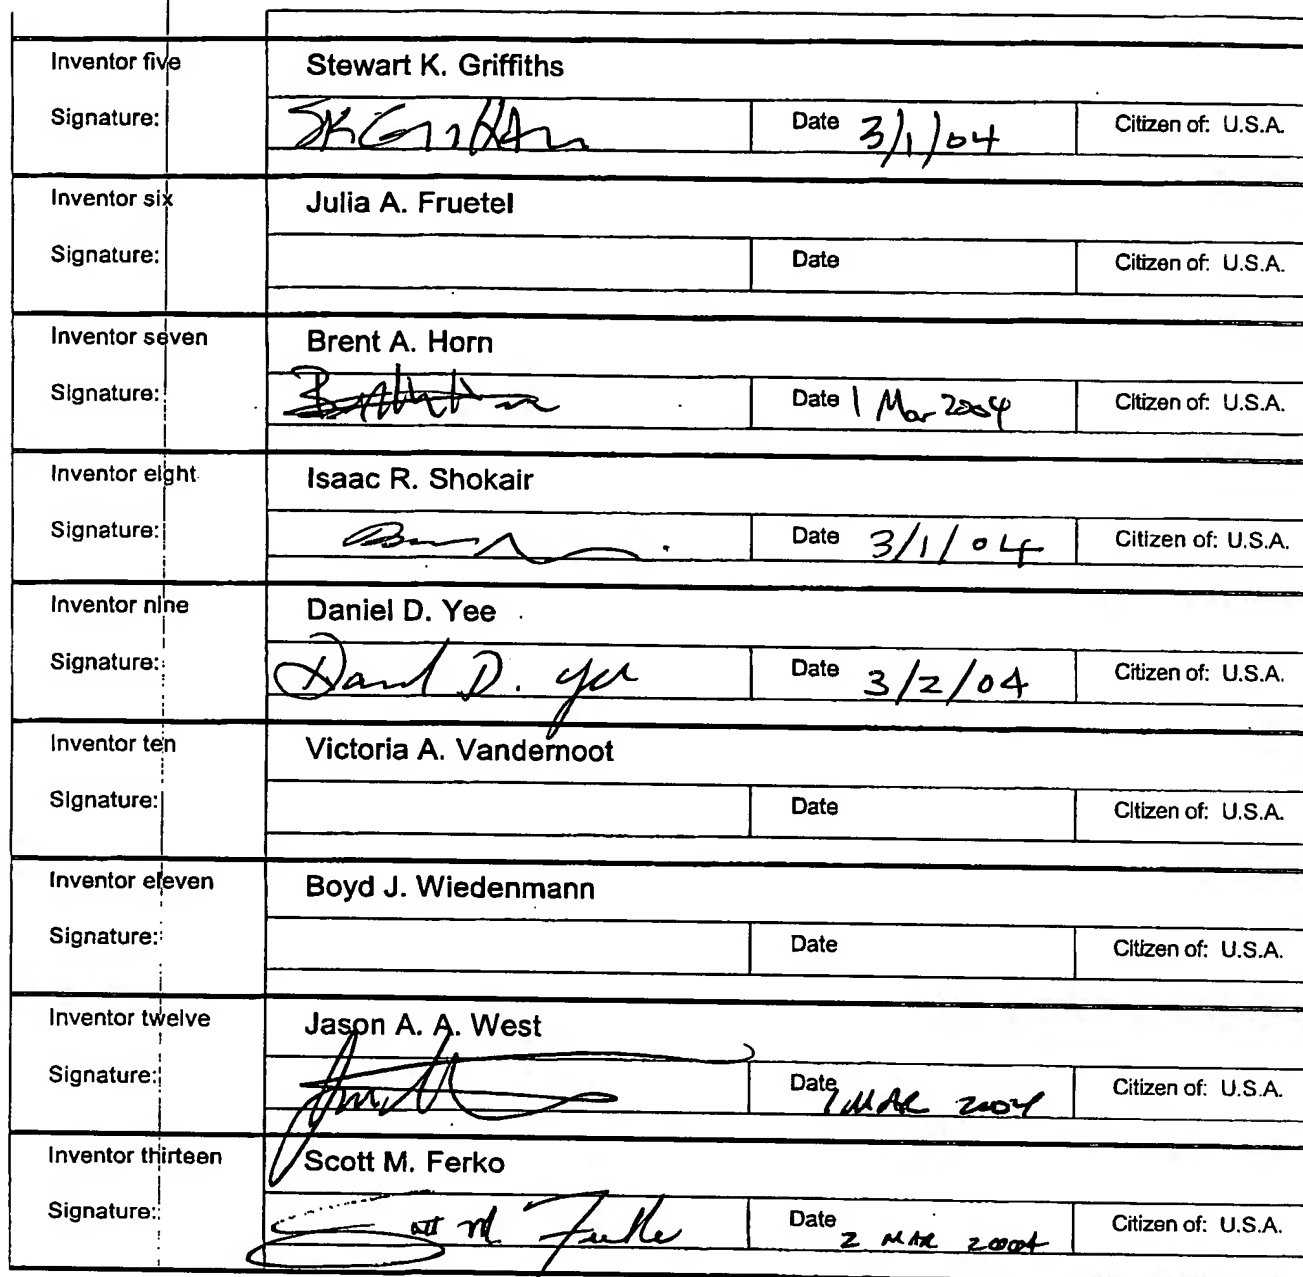 Inventor five Stewart K. Griffiths
Signature: SKGriffiths Date 3/1/04 Citizen of: U.S.A.
Inventor six Julia A. Fruetel
Signature: Date Citizen of: U.S.A.
Inventor seven Brent A. Horn
Signature: Date 1 Mar 2004 Citizen of: U.S.A.
Inventor eight Isaac R. Shokair
Signature: Date 3/1/04 Citizen of: U.S.A.
Inventor nine Daniel D. Yee
Signature: Daniel D. Yee Date 3/2/04 Citizen of: U.S.A.
Inventor ten Victoria A. Vandernoot
Signature: Date Citizen of: U.S.A.
Inventor eleven Boyd J. Wiedenmann
Signature: Date Citizen of: U.S.A.
Inventor twelve Jason A. A. West
Signature: Date 1 MAR 2004 Citizen of: U.S.A.
Inventor thirteen Scott M. Ferko
Signature: Scott M Ferko Date 2 MAR 2004 Citizen of: U.S.A.